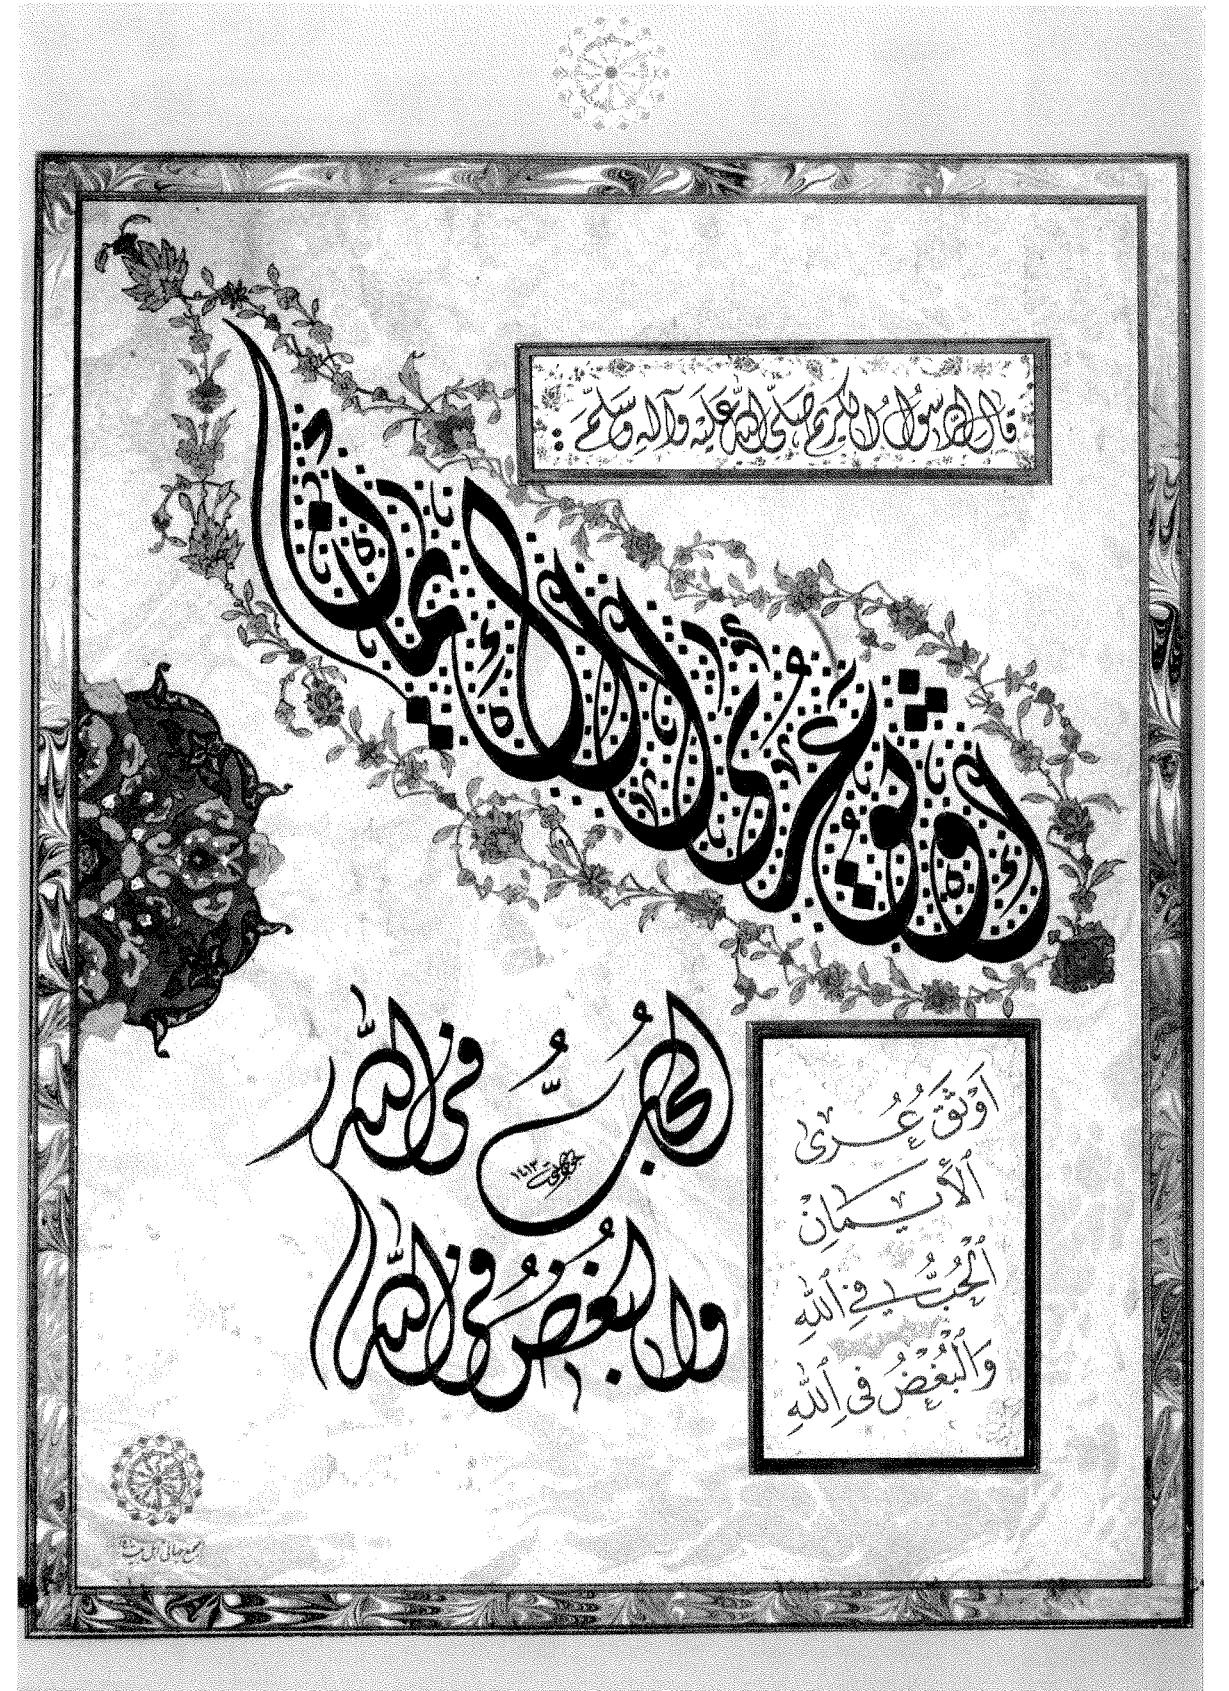 قال الرسول الكريم صلى الله عليه وآله وسلم:
أوثق عرى الإيمان
الحُبُّ في الله
١٤١٣
والبُغضُ في الله
اَوْثَقَ عُرى
اَلْأيمانِ
اَلْحُبُّ فِي اللهِ
وَالْبُغْضُ فى اللهِ
مجمع جهانی اهل بیت